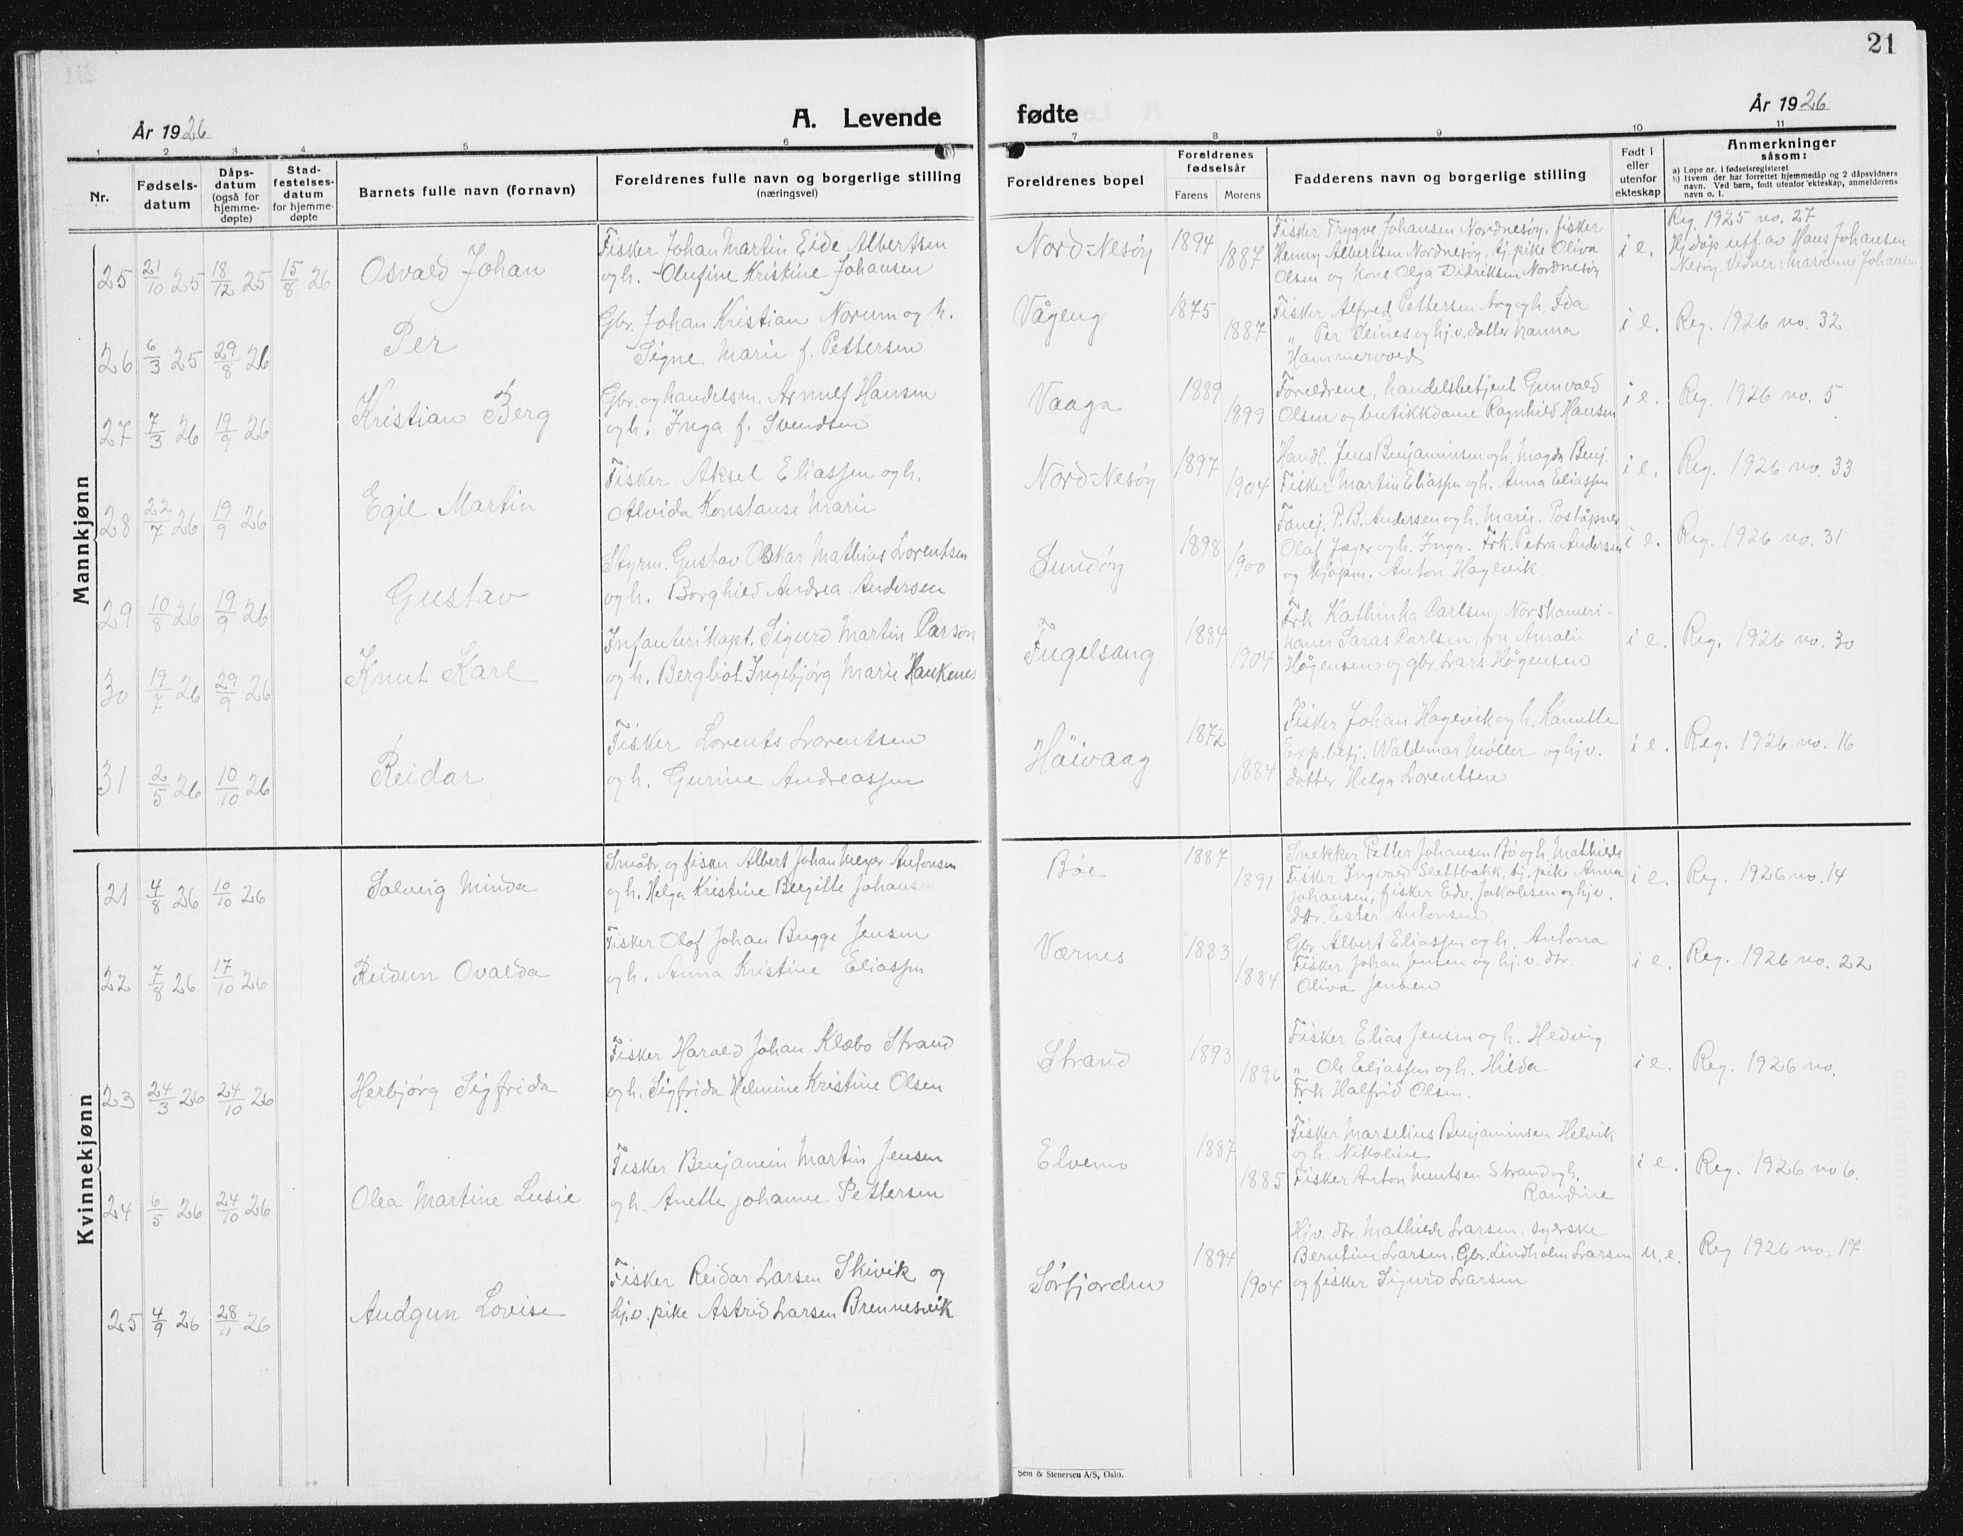 21
År 1926
A. Levende
fødte
År 1926
1 2 3 4 5 6 7 8 9 10 11
Nr.
Fødsels-
datum
Dåps-
datum
(også for
hjemme-
døpte)
Stad-
festelses-
datum
for hjemme-
døpte
Barnets fulle navn (fornavn)
Foreldrenes fulle navn og borgerlige stilling
(næringsvei)
Foreldrenes bopel
Foreldrenes
fødselsår
Farens Morens
Fadderens navn og borgerlige stilling
Født i
eller
utenfor
ekteskap
Anmerkninger
såsom:
a) Løpe nr. i fødselsregisteret
b) Hvem der har forrettet hjemmedåp og 2 dåpsvidners
navn. Ved barn, født utenfor ekteskap, anmelderens
navn o. l.
Mannkjønn
25 21/10 25 18/12 25 15/8 26
Osvald Johan
Fisker Johan Martin Eide Albertsen
og h. Olufine Kristine Johansen
Nord-Nesøy
1894 1887
Fisker Trygve Johansen Nordnesøy, fisker
Henny Albertsen Nordnesøy, tj. pike Oliva
Olsen og kone Olga Didriksen Nordnesøy
i e.
Reg. 1925 no. 27
Hj.døp utf. av Hans Johansen
Nesøy. Vidner: Marianne Johansen
26 6/3 25 29/8 26
Per
Gbr. Johan Kristian Norum og h.
Signe Marie f. Pettersen
Vågeng
1875 1887
Fisker Alfred Pettersen Aag og h. Ida
„ Per Seines og hj.v. datter Hanna
Hammervold
i e.
Reg. 1926 no. 32
27 7/3 26 19/9 26
Kristian Berg
Gbr. og handelsm. Arnulf Hansen
og h. Inga f. Svendsen
Vaaga
1889 1899
Foreldrene, handelsbetjent Gunvald
Olsen og butikkdame Ragnhild Hansen
i e.
Reg. 1926 no. 5
28 22/7 26 19/9 26
Egil Martin
Fisker Aksel Eliassen og h.
Alvida Konstanse Marie
Nord-Nesøy
1897 1904
Handl. Jens Benjaminsen og h. Magda Benj.
Fisker Martin Eliassen og h. Anna Eliassen
i e.
Reg. 1926 no. 33
29 10/8 26 19/9 26
Gustav
Styrm. Gustav Oskar Mathias Lorentsen
og h. Borghild Andrea Andersen
Sundøy
1898 1900
P. B. Andersen og h. Marie. Poståpner
Olaf Jæger og h. Inga. Frk. Petra Andersen
og kjøpm. Anton Hagevik.
i e.
Reg. 1926 no. 31
30 19/7 26 29/9 26
Knut Karl
Infanterikapt. Sigurd Martin Carson
og h. Bergliot Ingebjørg Marie Haukenes
Fugelsang
1884 1904
Frk Kathinka Carlsen, Norskameri-
kaner Saras Carlsen, fru Amalie
Høgensen og gbr. Lars Høgensen
i e.
Reg. 1926 no. 30
31 2/5 26 10/10 26
Reidar
Fisker Lorents Lorentsen
og h. Gurine Andreassen
Høivaag
1872 1884
Fisker Johan Hagevik og h. Kanutte
Exp.betj. Waldemar Møller og hj.v.
datter Helga Lorentsen
i e.
Reg. 1926 no. 16
Kvinnekjønn
21 4/8 26 10/10 26
Solveig Minda
Småbr. og fisker Albert Johan Meyer Antonsen
og h. Helga Kristine Bergitte Johansen
Bøe
1887 1891
Snekker Petter Johansen Bø og h. Mathilde
Fisker Ingvald Slettbakk, tj. pike Anna
Johansen, fisker Edv. Jakobsen og hj.v.
dtr. Ester Antonsen
i e.
Reg. 1926 no. 14
22 7/8 26 17/10 26
Reidun Ovalda
Fisker Olaf Johan Bugge Jensen
og h. Anna Kristine Eliassen
Værnes
1883 1884
Gbr Albert Eliassen og h. Antona
Fisker Johan Jensen og hj.v. dtr.
Oliva Jensen
i e.
Reg. 1926 no. 22
23 24/3 26 24/10 26
Herbjørg Sigfrida
Fisker Harald Johan Klæbo Strand
og h. Sigfrida Helmine Kristine Olsen
Strand
1893 1896
Fisker Elias Jensen og h. Hedvig
„ Ole Eliassen og h. Hilda
Frk Halfrid Olsen.
i e.
Reg. 1926 no.
24 6/5 26 24/10 26
Olea Martine Lusie
Fisker Benjamin Martin Jensen
og h. Anette Johanne Pettersen
Elvemo
1887 1885
Fisker Marselius Benjaminsen Helvik
og h. Nikoline
Fisker Anton Mentsen Strand og h.
Randine
i e.
Reg. 1926 no 6.
25 4/9 26 28/11 26
Audgun Lovise
Fisker Reidar Larsen Skivik og
hj.v. pike Astrid Larsen Brennesvik
Sørfjorden
1894 1904
Hjv. dtr. Mathilde Larsen, syerske
Berntine Larsen, Gbr. Lindholm Larsen
og fisker Sigurd Larsen
u. e.
Reg 1926 no. 17
Sem & Stenersen A/S, Oslo.